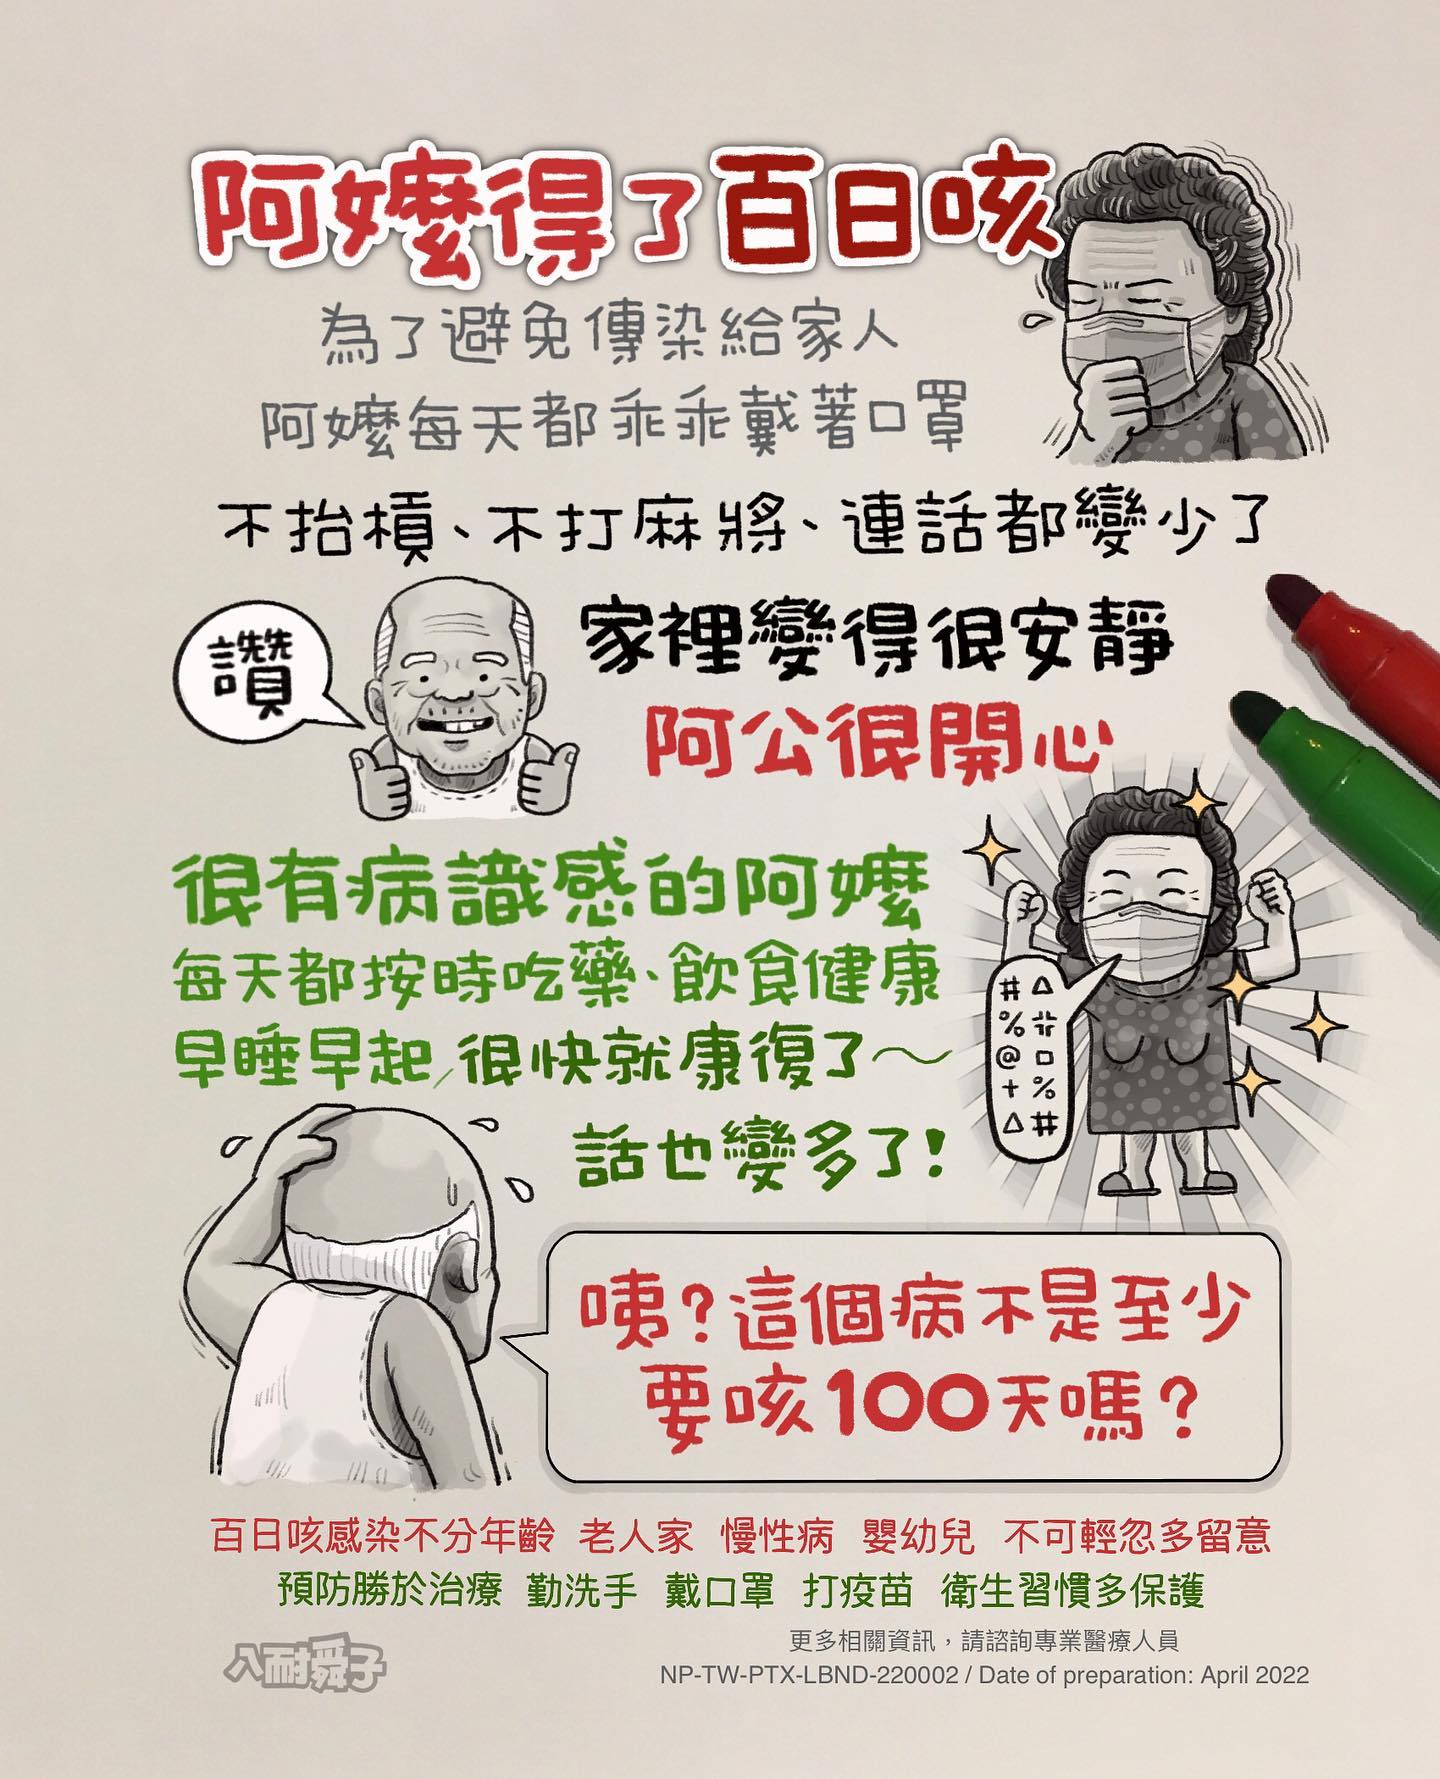 阿嬤得了百日咳
為了避免傳染給家人
阿嬤每天都乖乖戴著口罩
不抬槓、不打麻將、連話都變少了
讚
家裡變得很安靜
阿公很開心
很有病識感的阿嬤
每天都按時吃藥、飲食健康
早睡早起，很快就康復了～
話也變多了！
# △
% ㄍ
@ □
+ %
△ #
咦？這個病不是至少
要咳100天嗎？
百日咳感染不分年齡 老人家 慢性病 嬰幼兒 不可輕忽多留意
預防勝於治療 勤洗手 戴口罩 打疫苗 衛生習慣多保護
更多相關資訊，請諮詢專業醫療人員
八耐舜子
NP-TW-PTX-LBND-220002 / Date of preparation: April 2022